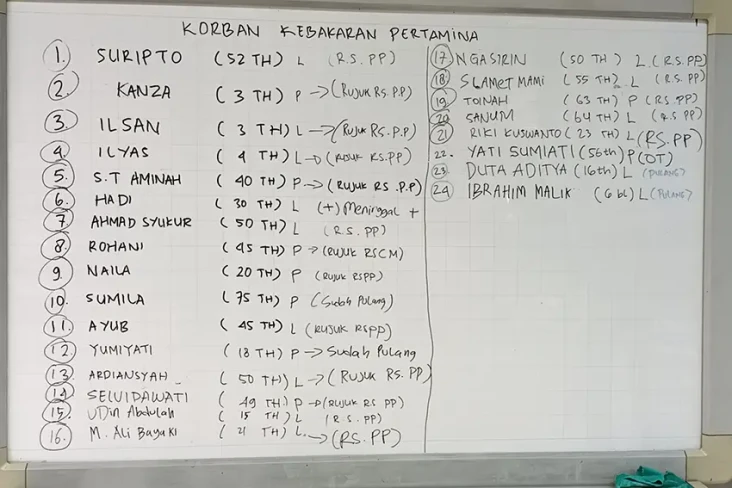 KORBAN KEBAKARAN PERTAMINA
1. SURIPTO (52 TH) L (R.S. PP)
2. KANZA (3 TH) P → (RUJUK RS. P.P)
3. ILSAN (3 TH) L → (RUJUK RS. P.P)
4. ILYAS (4 TH) L → (RUJUK RS.PP)
5. S.T AMINAH (40 TH) P → (RUJUK RS. P.P)
6. HADI (30 TH) L (+) Meninggal +
7. AHMAD SYUKUR (50 TH) L (R.S. PP)
8. ROHANI (45 TH) P → (RUJUK RSCM)
9. NAILA (20 TH) P (RUJUK RSPP)
10. SUMILA (75 TH) P (Sudah Pulang)
11. AYUB (45 TH) L (RUJUK RSPP)
12. YUMIYATI (18 TH) P → Sudah Pulang
13. ARDIANSYAH (50 TH) L → (RUJUK RS. PP)
14. SELVIDAWATI (49 TH) P → (RUJUK RS PP)
15. UDin Abdulah (15 TH) L (R.S. PP)
16. M. Ali Bayaki (21 TH) L. → (RS. PP)
17. NGASIRIN (50 TH) L (R.S. PP)
18. SLAMET MAMI (55 TH) L (R.S. PP)
19. TOINAH (63 TH) P (RS. PP)
20. SANUM (64 TH) L (R.S PP)
21. RIKI KUSWANTO (23 TH) L (RS. PP)
22. YATI SUMIATI (56th) P (OT)
23. DUTA ADITYA (16th) L (PULANG)
24. IBRAHIM MALIK (6 bl) L (PULANG)